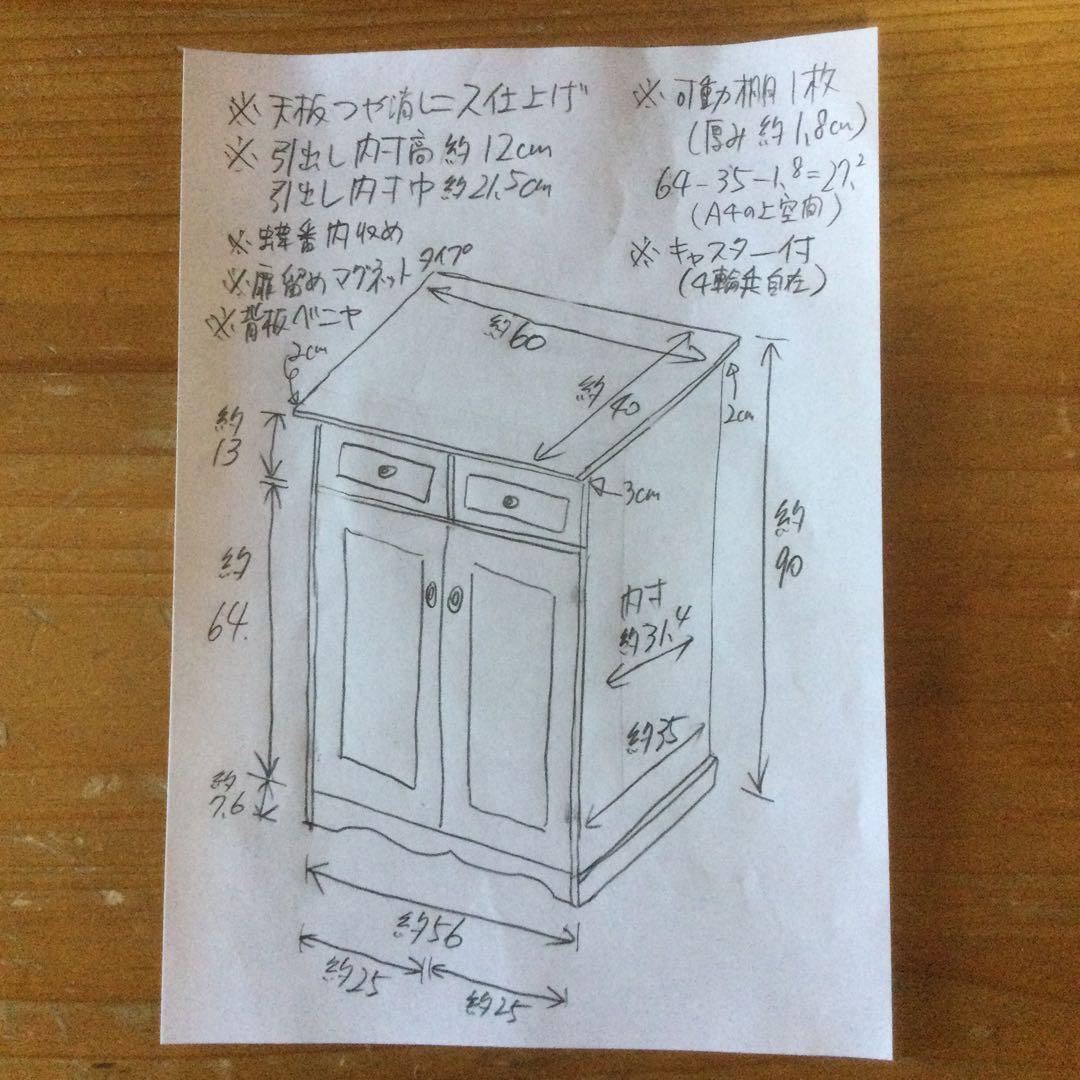 ※天板つや消しニス仕上げ
※引出し内寸高約12cm
引出し内寸巾約21.5cm
※蝶番内収め
タイプ
※扉留めマグネット
※背板ベニヤ
※可動棚1枚
(厚み約1.8cm)
64-35-1.8=27.2
(A4の上空間)
※キャスター付
(4輪共自在)
2cm
約60
約40
2cm
約
13
3cm
約
90
約
64.
内寸
約31.4
約35
約
7.6
約56
約25
約25